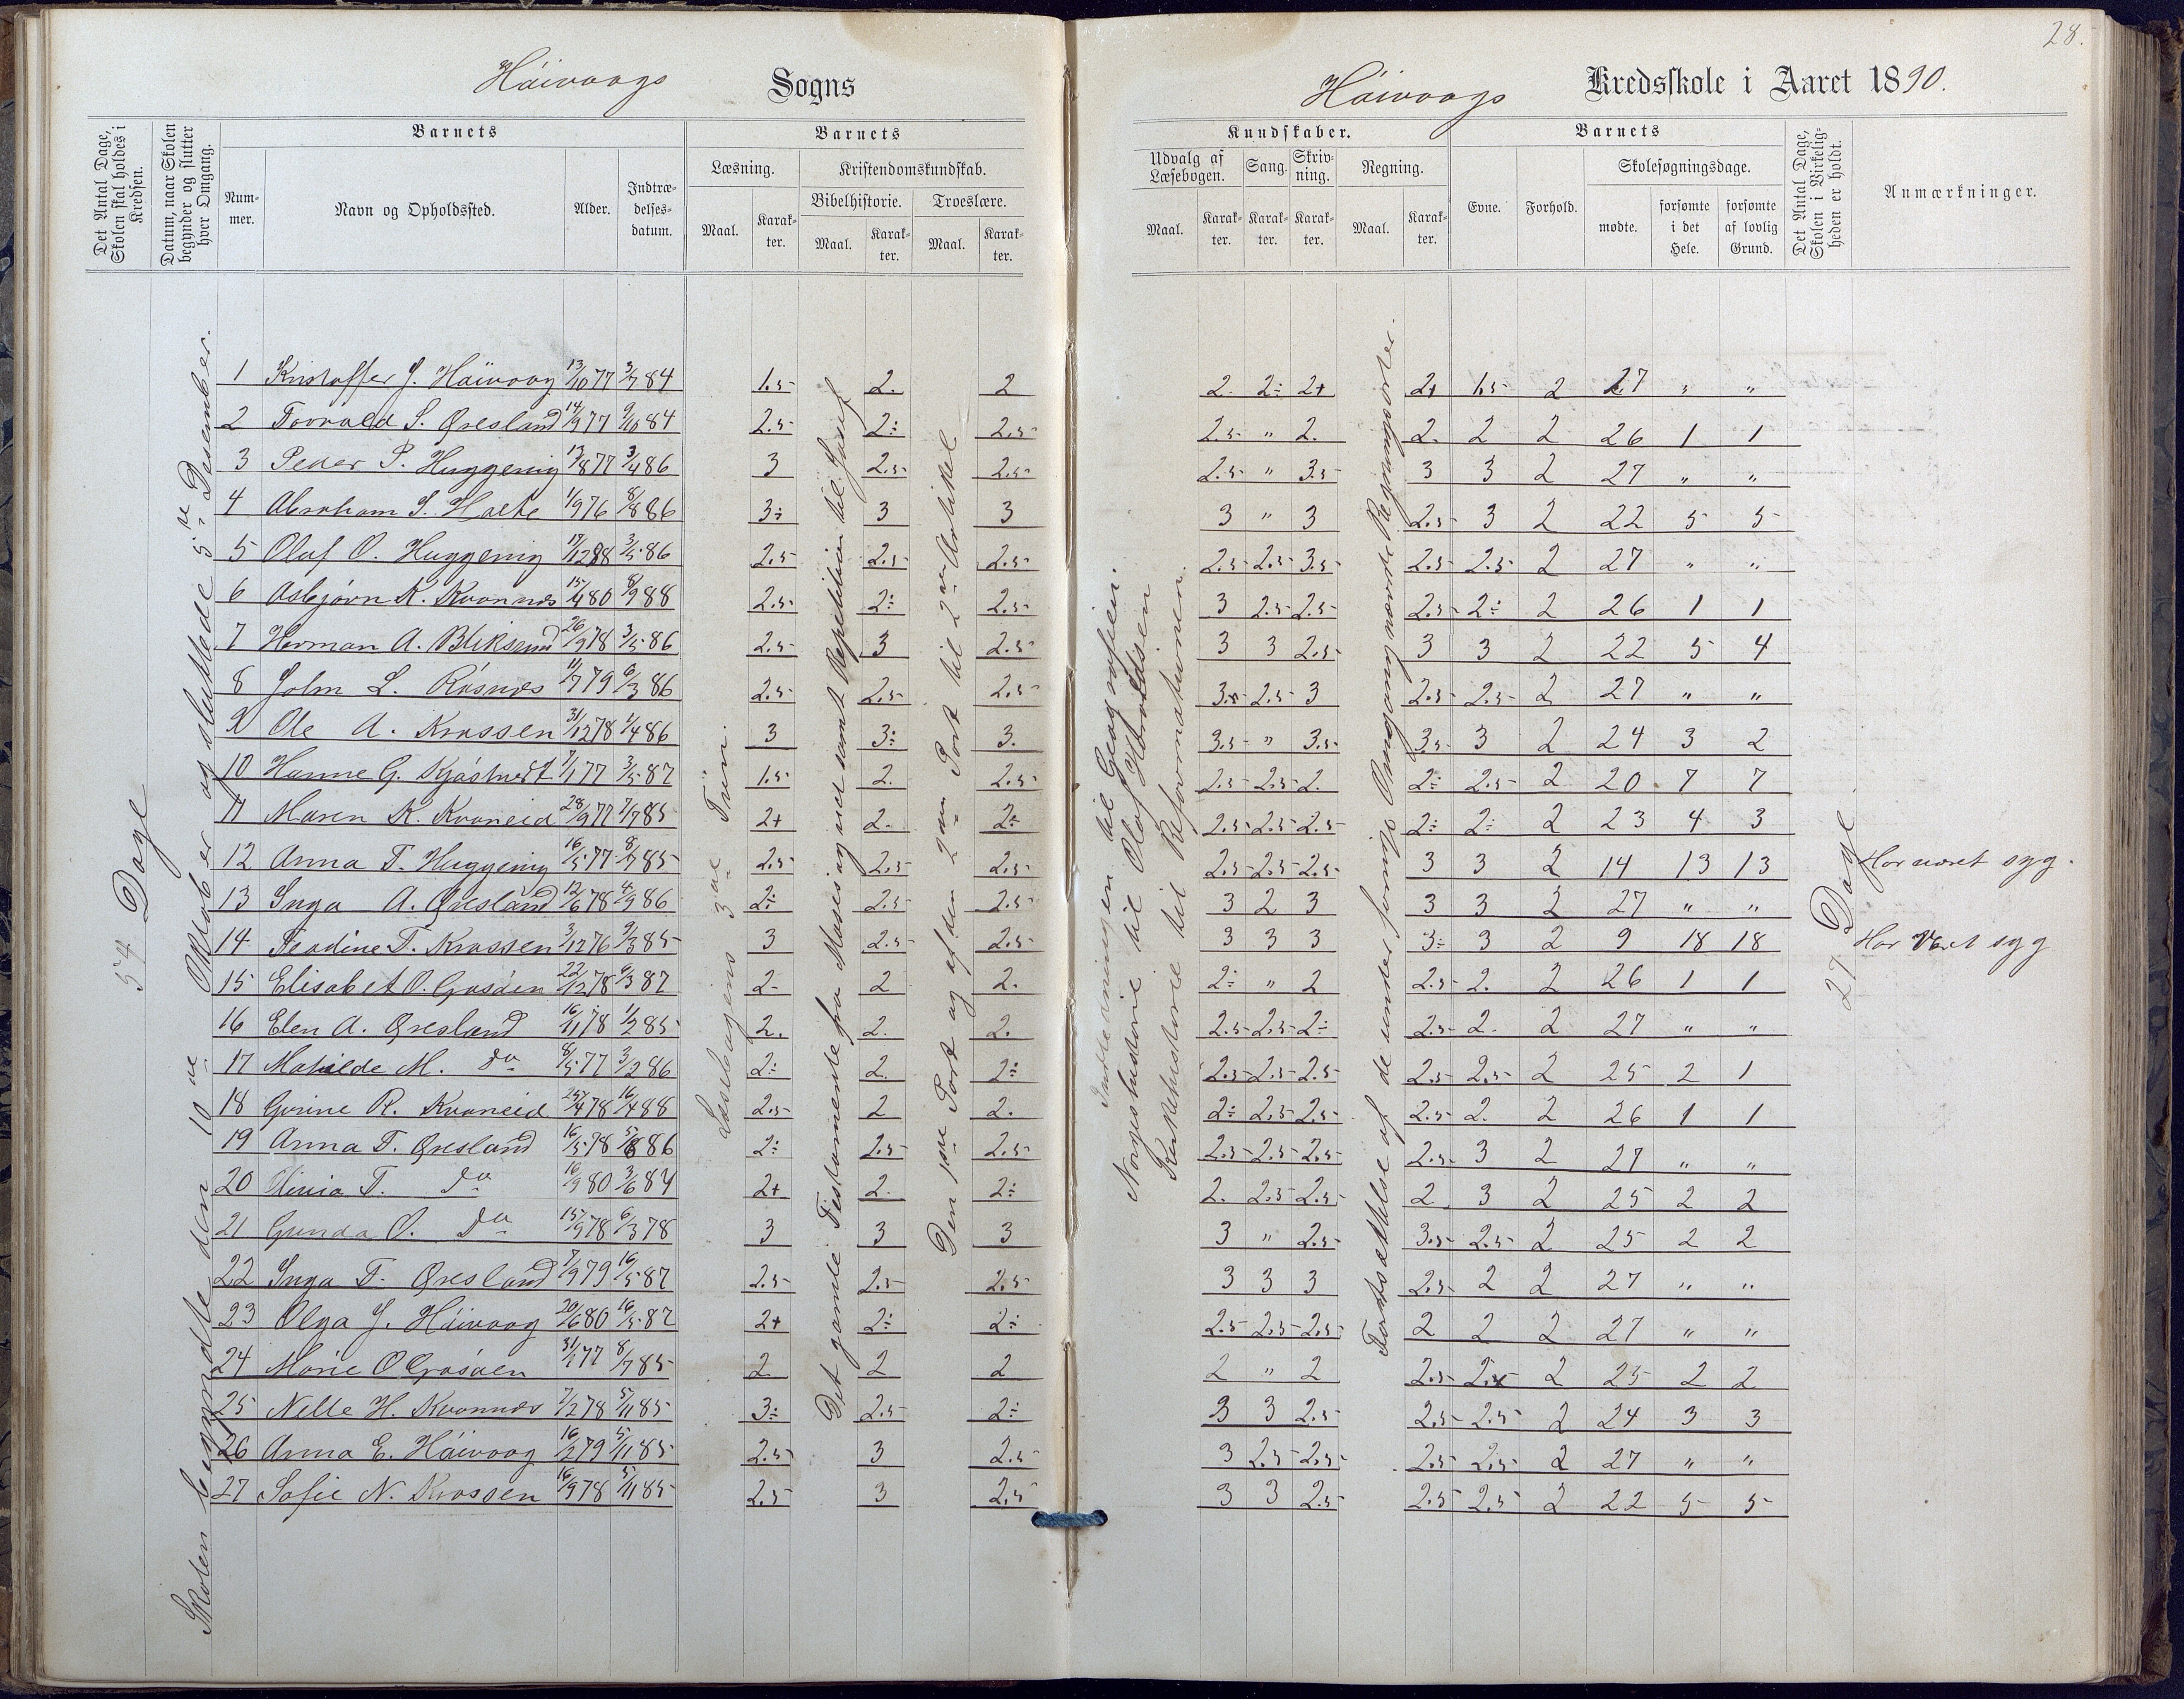 28.
Háivaags Sogns
Háivaags Kredsskole i Aaret 1890.
Det Antal Dage, Skolen skal holdes i Kredsen.
Datum, naar Skolen begynder og slutter hver Omgang.
Barnets
Num-mer.
Navn og Opholdssted.
Alder.
Indtræ-delses-datum.
Barnets
Læsning.
Maal. Karak-ter.
Kristendomskundskab.
Bibelhistorie. Troeslære.
Maal. Karak-ter. Maal. Karak-ter.
Kundskaber.
Udvalg af Læsebogen. Sang. Skriv-ning. Regning.
Maal. Karak-ter. Karak-ter. Karak-ter. Maal. Karak-ter.
Barnets
Evne. Forhold.
Skolesøgningsdage.
mødte. forsømte i det Hele. forsømte af lovlig Grund.
Det Antal Dage, Skolen i Virkelig-heden er holdt.
Anmærkninger.
54 Dage
Skolen begyndte den 10de Oktober og sluttede 5te Desember.
Læsebogens 3die Trin.
Det gamle Testamente fra Moses og ned samt Repetition til Josef
Den 1ste Part og af den 2den Part til 2den Artikel
Indledningen til Geografien.
Norgeshistorie til Olaf Haraldsen
Kirkehistorie til Reformationen.
Fortsættelse af de under forrige Omgang nævnte Regningsarter.
27 Dage
1 Kristoffer J. Háivaag 13/10 77 3/7 84 1.5 2. 2 2. 2÷ 2+ 2+ 1.5 2 27 " "
2 Torvald S. Øresland 14/9 77 9/10 84 2.5 2÷ 2.5 2.5 " 2. 2. 2 2 26 1 1
3 Peder P. Huggenig 13/8 77 3/4 86 3 2.5 2.5 2.5 " 3.5 3 3 2 27 " "
4 Abraham S. Holte 1/9 76 8/8 86 3÷ 3 3 3 " 3 2.5 3 2 22 5 5
5 Oluf O. Huggenig 17/12 88 3/5 86 2.5 2.5 2.5 2.5 2.5 3.5 2.5 2.5 2 27 " "
6 Asbjørn K. Kvannes 15/4 80 8/9 88 2.5 2÷ 2.5 3 2.5 2.5 2.5 2÷ 2 26 1 1
7 Herman A. Bliksund 26/9 78 3/5 86 2.5 3 2.5 3 3 2.5 3 3 2 22 5 4
8 John L. Rósnes 11/7 79 6/3 86 2.5 2.5 2.5 3. 2.5 3 2.5 2.5 2 27 " "
9 Ole A. Krossen 31/12 78 1/4 86 3 3÷ 3. 3.5 " 3.5 3.5 3 2 24 3 2
10 Hanne G. Kjøstvedt 7/1 77 3/5 87 1.5 2. 2.5 2.5 2.5 2. 2÷ 2.5 2 20 7 7
11 Maren K. Kvaneid 28/9 77 7/7 85 2+ 2. 2÷ 2.5 2.5 2.5 2÷ 2÷ 2 23 4 3
12 Anna T. Huggenig 16/5 77 8/7 85 2.5 2.5 2.5 2.5 2.5 2.5 3 3 2 14 13 13 Har været syg.
13 Inga A. Øresland 12/6 78 4/9 86 2÷ 2.5 2.5 3 2 3 3 3 2 27 " "
14 Teodine T. Krossen 3/12 76 9/3 85 3 2.5 2.5 3 3 3 3÷ 3 2 9 18 18 Har Været syg
15 Elisabet O. Gaasóen 22/12 78 6/3 87 2- 2 2. 2÷ " 2 2.5 2. 2 26 1 1
16 Elen A. Øresland 16/11 78 1/2 85 2. 2. 2. 2.5 2.5 2÷ 2.5 2. 2 27 " "
17 Matilde M. do 8/5 77 3/2 86 2÷ 2. 2÷ 2.5 2.5 2.5 2.5 2.5 2 25 2 1
18 Gurine R. Kvaneid 25/4 78 16/4 88 2.5 2 2. 2÷ 2.5 2.5 2.5 2. 2 26 1 1
19 Anna T. Øresland 16/5 78 5/8 86 2÷ 2.5 2.5 2.5 2.5 2.5 2.5 3 2 27 " "
20 T. do 16/9 80 3/6 84 2+ 2. 2÷ 2. 2.5 2.5 2 3 2 25 2 2
21 Gunda O. do 15/9 78 6/3 78 3 3 3 3 " 2.5 3.5 2.5 2 25 2 2
22 Inga T. Øresland 7/9 79 16/5 87 2.5 2.5 2.5 3 3 3 2.5 2 2 27 " "
23 Olga J. Háivaag 20/6 80 16/5 87 2+ 2÷ 2÷ 2.5 2.5 2.5 2 2 2 27 " "
24 Marie O Gaasóen 31/1 77 8/7 85 2 2 2 2 " 2 2.5 2. 2 25 2 2
25 Nelle H. Kvannes 7/2 78 5/11 85 3÷ 2.5 2÷ 3 3 2.5 2.5 2.5 2 24 3 3
26 Anna E. Háivaag 16/2 79 5/11 85 2.5 3 2.5 3 2.5 2.5 2.5 2.5 2 27 " "
27 Sofie N. Krossen 16/9 78 5/11 85 2.5 3 2.5 3 3 2.5 2.5 2.5 2 22 5 5